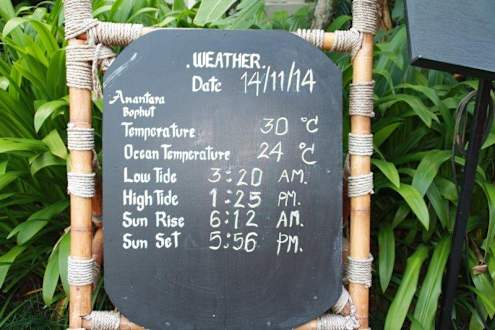 . WEATHER.
Date 14/11/14
Anantara
Bophut
Temperature 30 °C
Ocean Temperature 24 °C
Low Tide 3:20 AM.
High Tide 1:25 PM.
Sun Rise 6:12 AM.
Sun Set 5:56 PM.